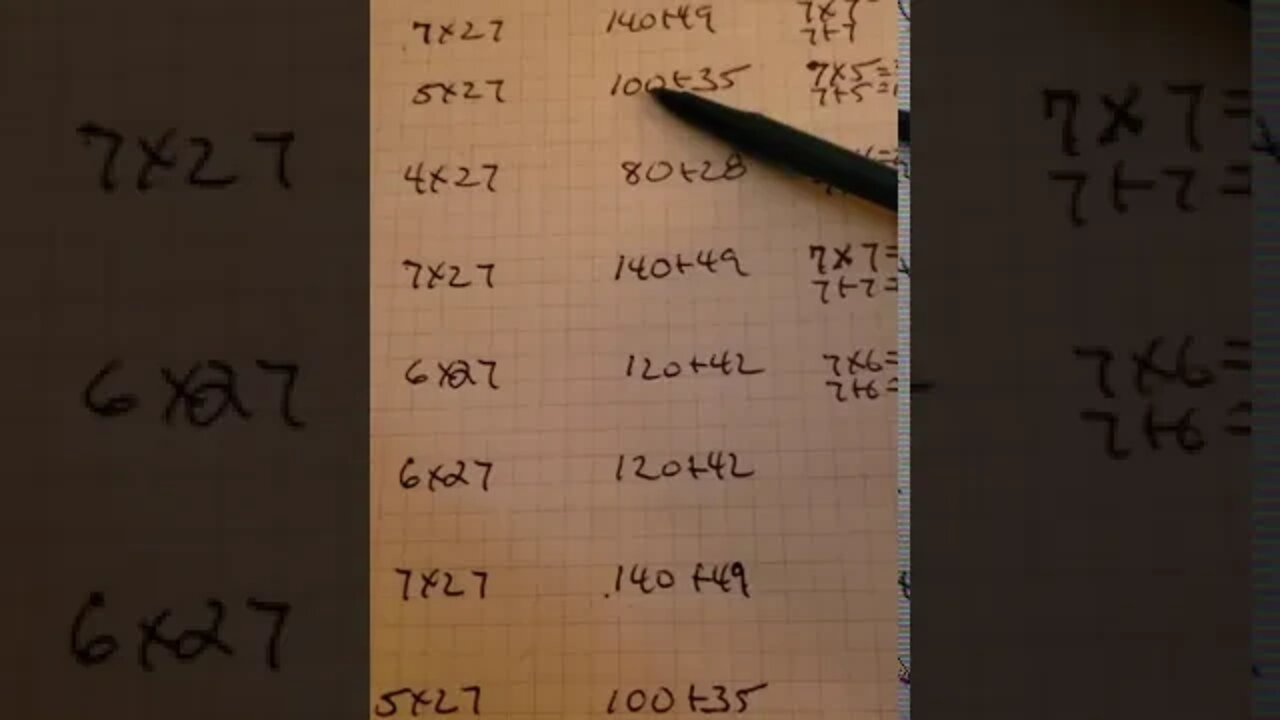 7x27 140+49 7x7
7+7
5x27 100+35 7x5=
7+5=1
4x27 80+28
7x27 140+49 7x7=
7+7=
6x27 120+42 7x6=
7+6=
6x27 120+42
7x27 140+49
5x27 100+35